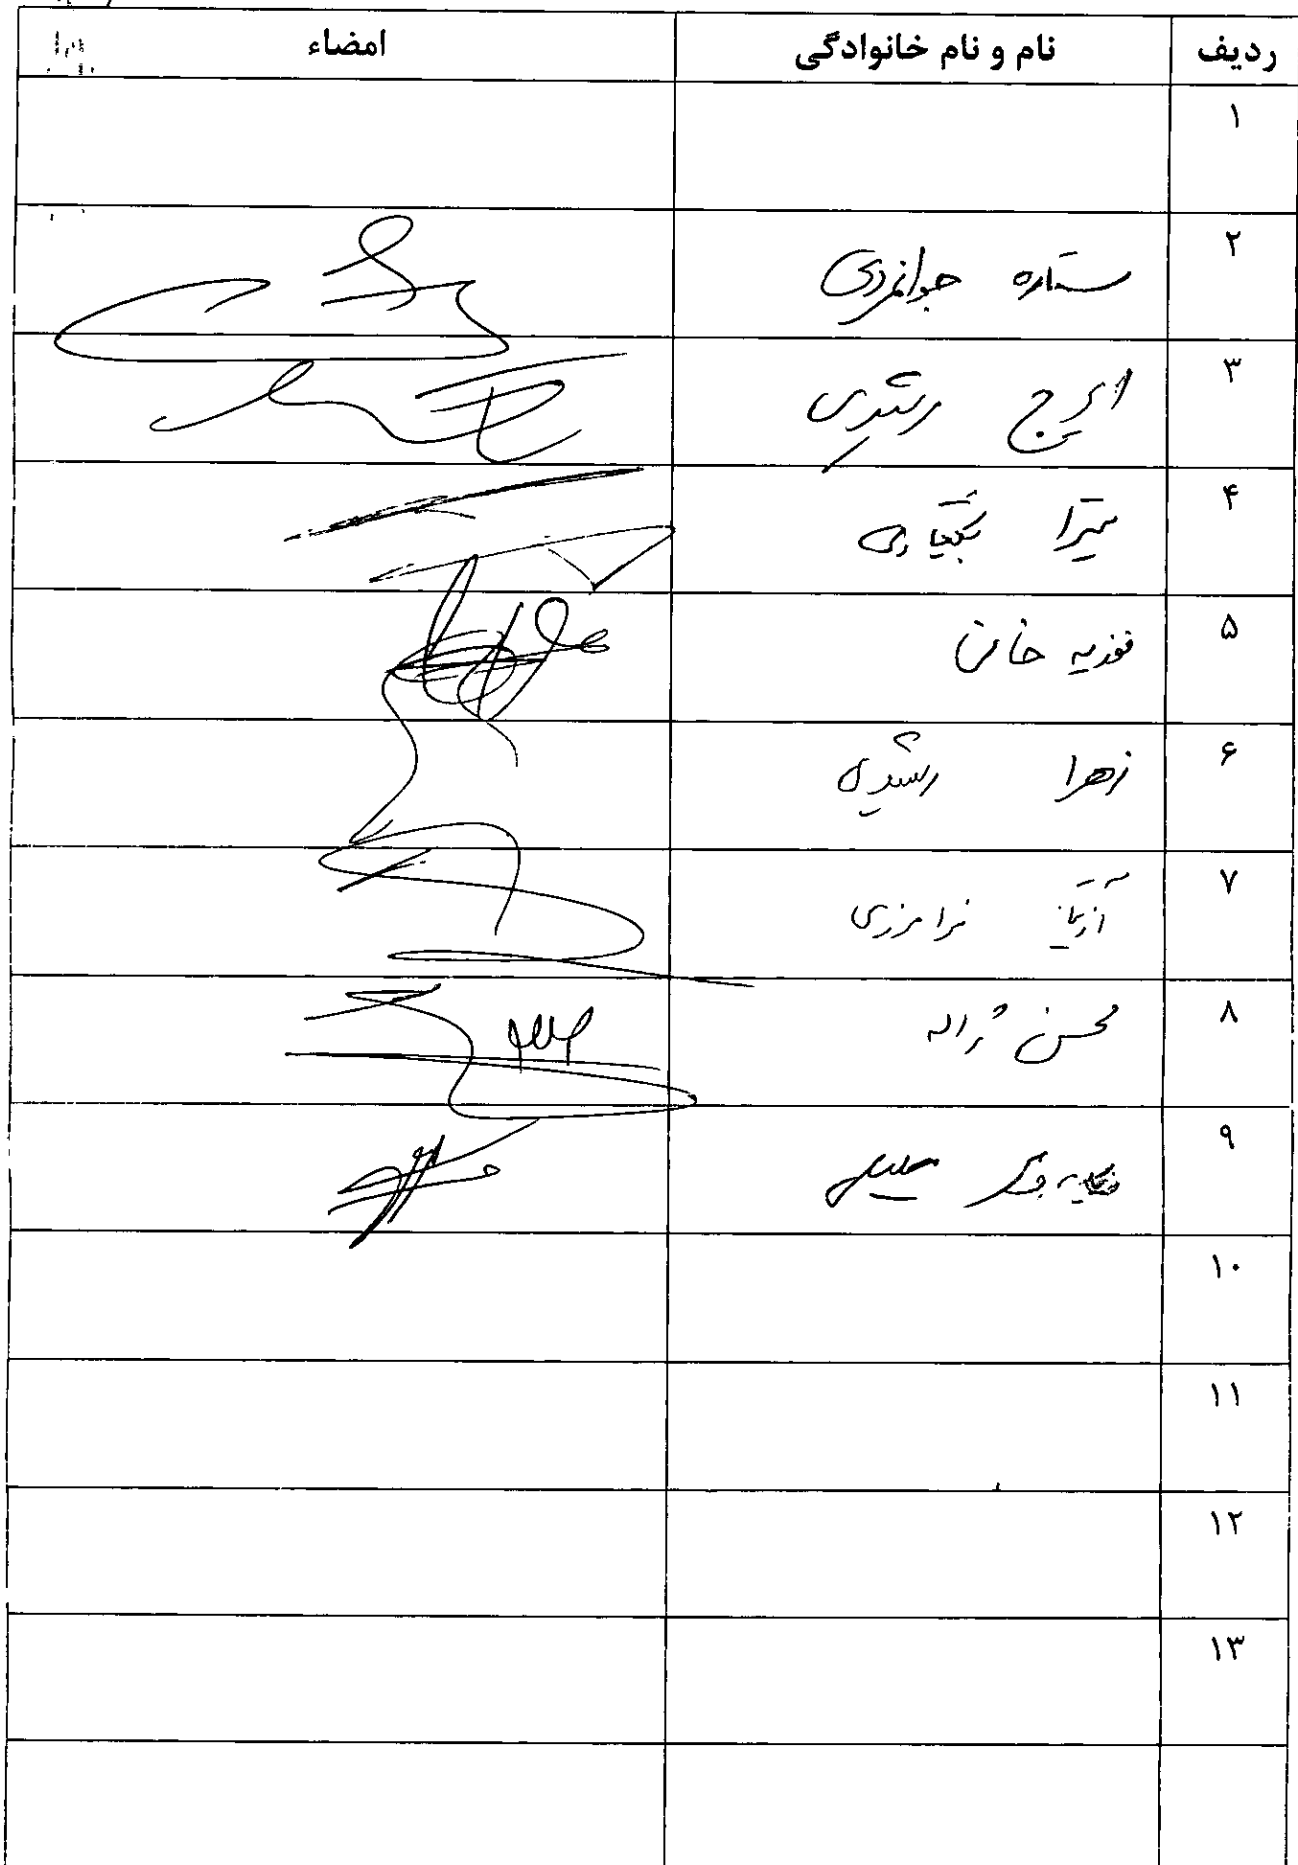 ردیف نام و نام خانوادگی امضاء
۱
۲ ستاره جوانمردی
۳ ایرج رشیدی
۴ میترا بختیاری
۵ فوزیه خانی
۶ زهرا رشیدی
۷ فرامرزی
۸ محسن ژاله
۹
۱۰
۱۱
۱۲
۱۳